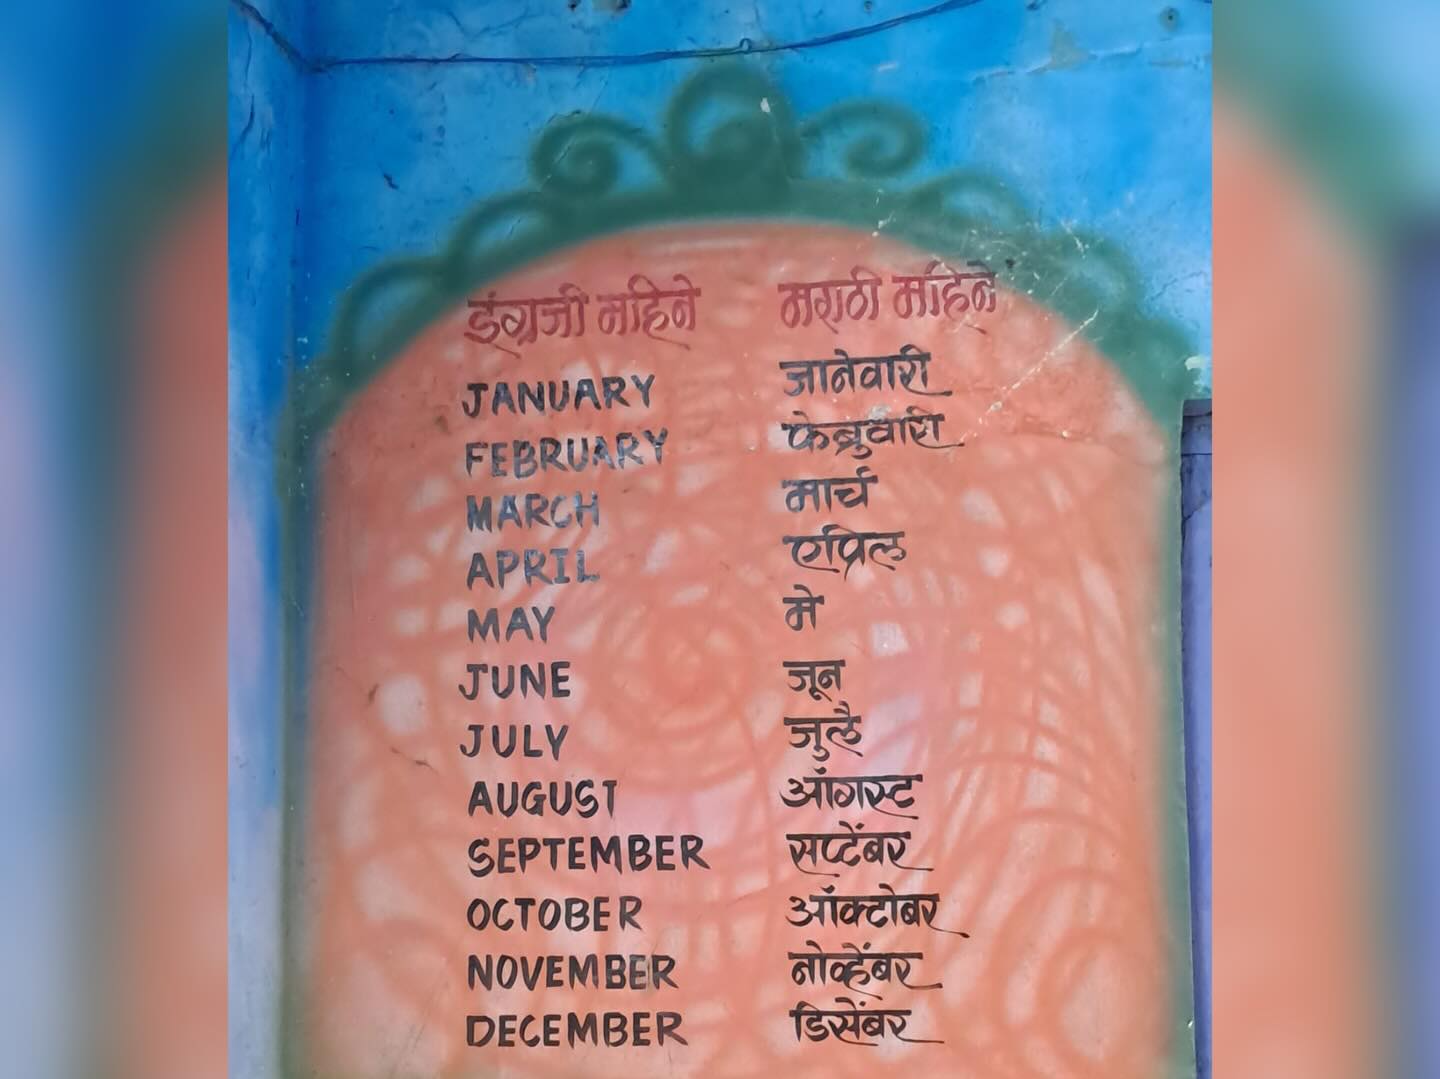 इंग्रजी महिने मराठी महिने
JANUARY जानेवारी
FEBRUARY फेब्रुवारी
MARCH मार्च
APRIL एप्रिल
MAY मे
JUNE जून
JULY जुलै
AUGUST ऑगस्ट
SEPTEMBER सप्टेंबर
OCTOBER ऑक्टोबर
NOVEMBER नोव्हेंबर
DECEMBER डिसेंबर